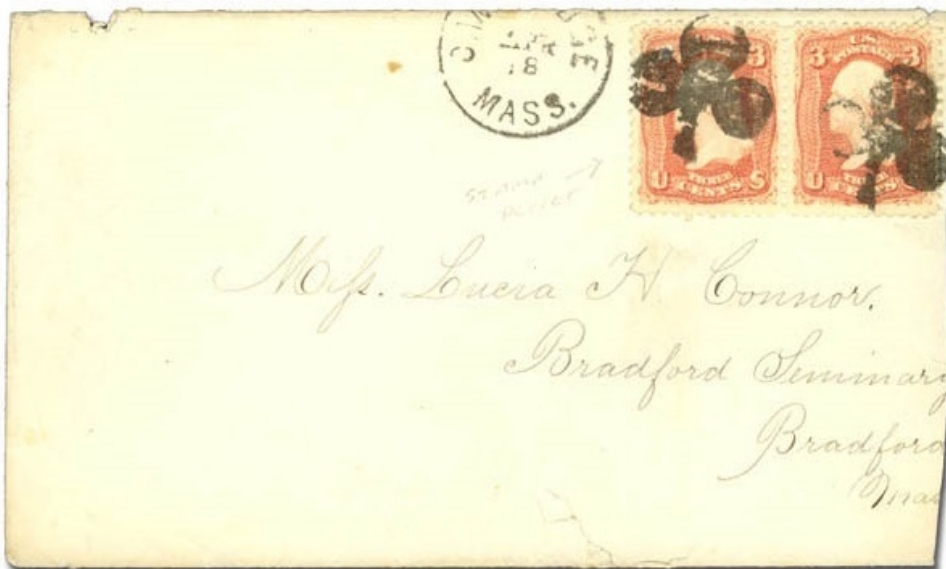 MASS.
18
3 U.S. POSTAGE 3
U THREE CENTS S
3
U THREE CENTS S
Miſs. Lucia H. Connor.
Bradford Seminary
Bradford
Mas